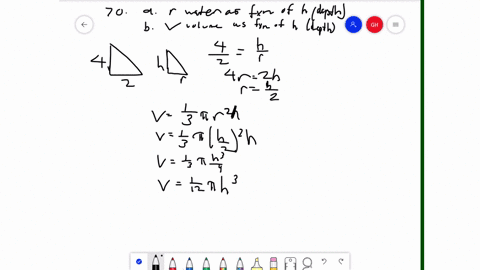 70. a. r water as fxn of h (depth)
b. V volume as fxn of h (depth)
4
2
h
r
4/2 = h/r
4r = 2h
r = h/2
V = 1/3 π r²h
V = 1/3 π (h/2)² h
V = 1/3 π h³/4
V = 1/12 π h³
GH